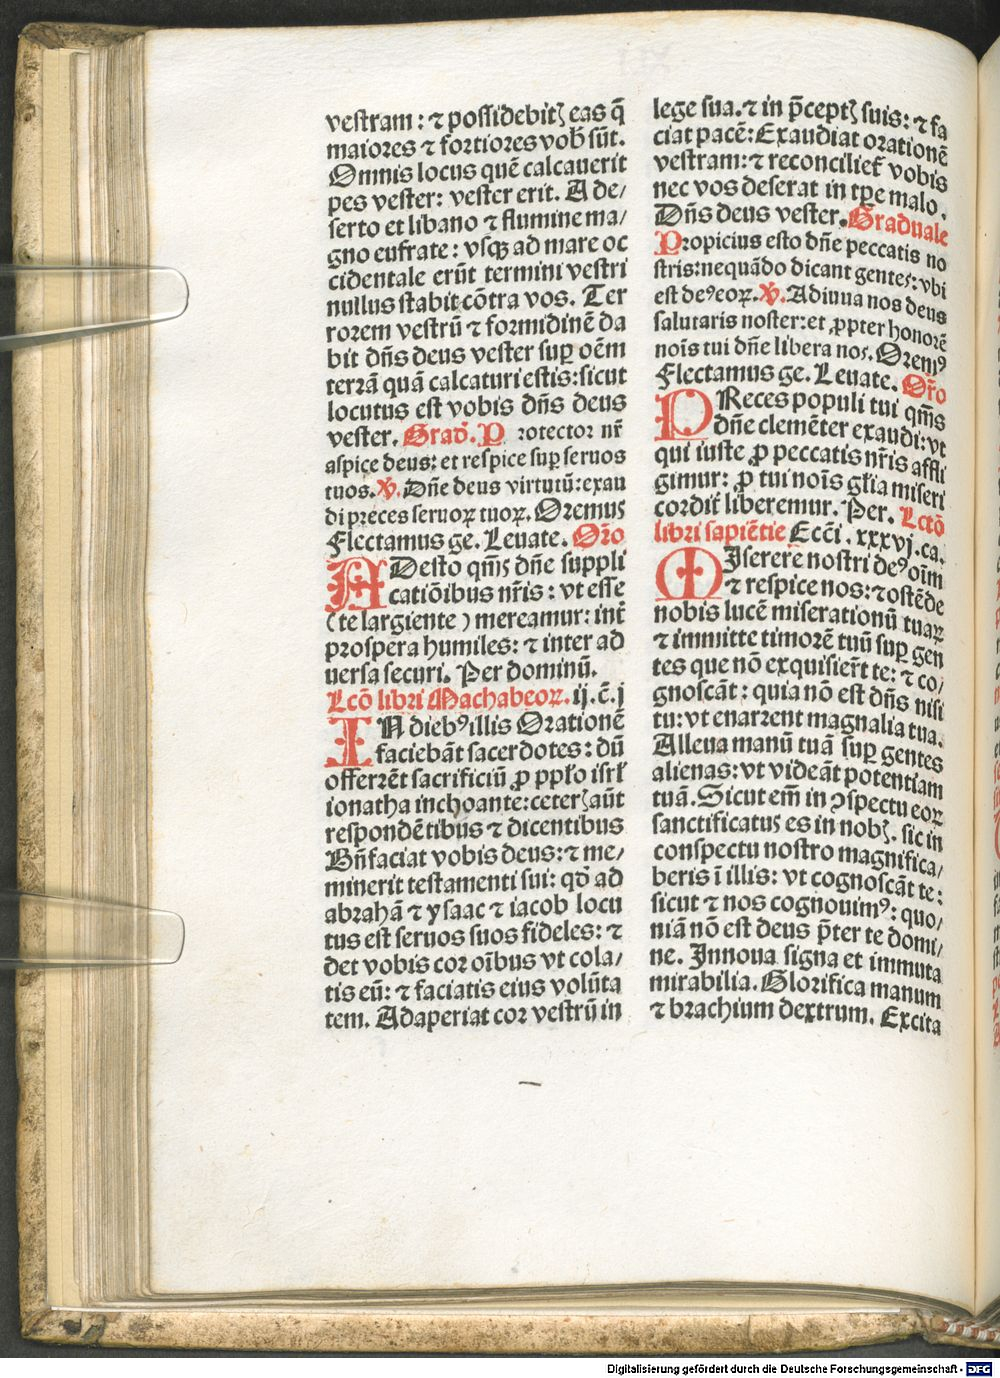 vestram: ⁊ possidebitꝭ eas q̃
maiores ⁊ fortiores vob̃ sũt.
Omnis locus quẽ calcauerit
pes vester: vester erit. A de⸗
serto et libano ⁊ flumine ma⸗
gno eufrate: vsqꝫ ad mare oc
cidentale erũt termini vestri
nullus stabit cõtra vos. Ter
rorem vestrũ ⁊ formidinẽ da
bit dñs deus vester suꝑ oẽm
terrã quã calcaturi estis: sicut
locutus est vobis dñs deus
vester. Grad̃. Protector nr̃
aspice deus: et respice suꝑ seruos
tuos. ℣. Dñe deus virtutũ: exau
di preces seruoꝝ tuoꝝ. Oremus
Flectamus ge. Leuate. Or̃o
ADesto qm̃s dñe suppli
catiõibus nr̃is: vt esse
(te largiente) mereamur: int̃
prospera humiles: ⁊ inter ad
uersa securi. Per dominũ.
Lcõ libri Machabeoꝝ. ij. c̃. j
IN diebꝰ illis Orationẽ
faciebãt sacerdotes: dũ
offerrẽt sacrificiũ ꝓ ppl̃o isrl̃
ionatha inchoante: ceterꝭ aũt
respondẽtibus ⁊ dicentibus
Bñfaciat vobis deus: ⁊ me⸗
minerit testamenti sui: qð ad
abrahã ⁊ ysaac ⁊ iacob locu
tus est seruos suos fideles: ⁊
det vobis cor oĩbus vt cola⸗
tis eũ: ⁊ faciatis eius volũta
tem. Adaperiat cor vestrũ in
lege sua. ⁊ in p̃ceptꝭ suis: ⁊ fa
ciat pacẽ: Exaudiat orationẽ
vestram: ⁊ reconciliet̃ vobis
nec vos deserat in tꝑe malo.
Dñs deus vester. Graduale
Propicius esto dñe peccatis no
stris: nequãdo dicant gentes: vbi
est deꝰ eoꝝ. ℣. Adiuua nos deus
salutaris noster: et ꝓpter honorẽ
noĩs tui dñe libera nos. Oremꝰ
Flectamus ge. Leuate. Or̃o
PReces populi tui qm̃s
dñe clemẽter exaudi: vt
qui iuste ꝓ peccatis nr̃is affli
gimur: ꝓ tui noĩs gl̃ia miseri
cordit̃ liberemur. Per. Lctõ
libri sapiẽtie Ecc̃i. xxxvj. ca.
MIserere nostri deꝰ oĩm
⁊ respice nos: ⁊ ostẽde
nobis lucẽ miserationũ tuaꝝ
⁊ immitte timorẽ tuũ suꝑ gen
tes que nõ exquisier̃t te: ⁊ co⸗
gnoscãt: quia nõ est dñs nisi
tu: vt enarrent magnalia tua.
Alleua manũ tuã suꝑ gentes
alienas: vt videãt potentiam
tuã. Sicut em̃ in ꝯspectu eoꝝ
sanctificatus es in nobꝭ. sic in
conspectu nostro magnifica⸗
beris ĩ illis: vt cognoscãt te:
sicut ⁊ nos cognouimꝰ: quo⸗
niã nõ est deus p̃ter te domi⸗
ne. Innoua signa et immuta
mirabilia. Glorifica manum
⁊ brachium dextrum. Excita
Digitalisierung gefördert durch die Deutsche Forschungsgemeinschaft - DFG